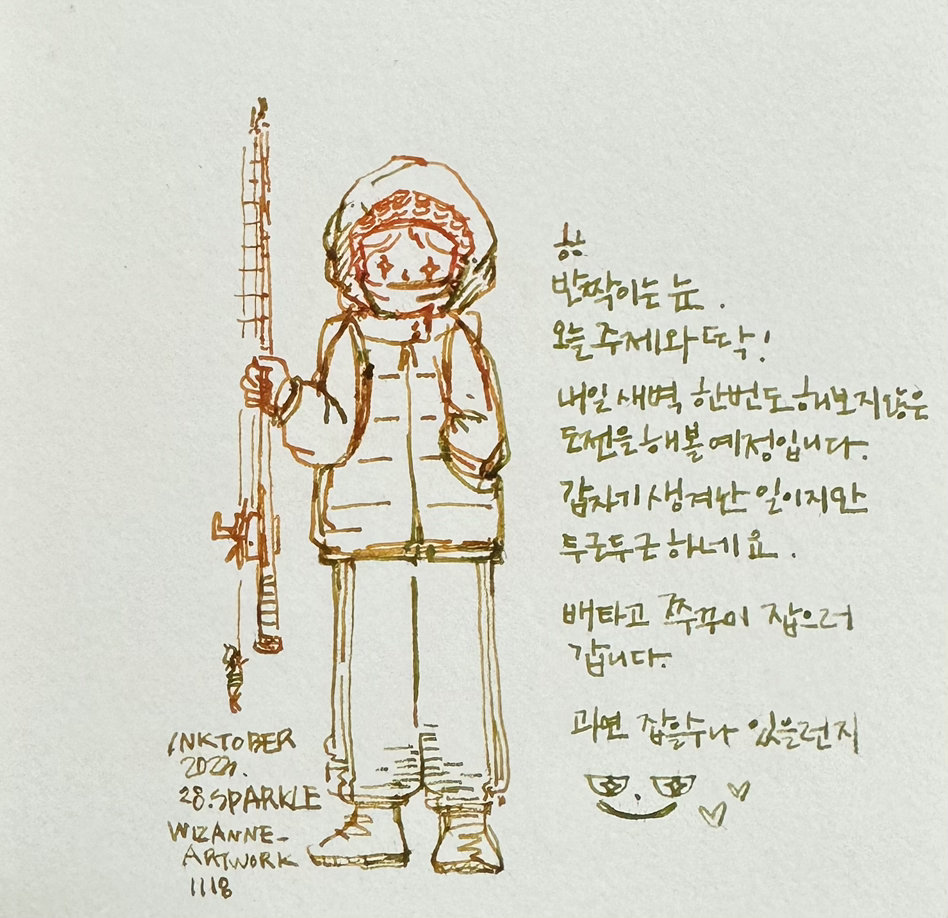 핫
반짝이는 눈.
오늘 주제와 딱!
내일 새벽 한번도 해보지않은
도전을 해볼 예정입니다.
갑자기 생겨난 일이지만
두근두근 하네요.
배타고 쭈꾸미 잡으러
갑니다.
과연 잡을수나 있을런지
INKTOBER
28.SPARKLE
WIZANNE-
ARTWORK
1118